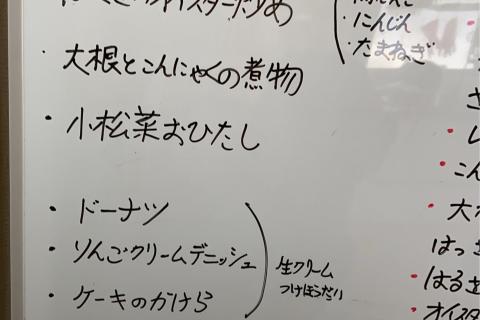 オイスター炒め
・大根とこんにゃくの煮物
・小松菜おひたし
・ドーナツ
・りんごクリームデニッシュ
・ケーキのかけら
生クリーム
つけほうだい
・にんじん
・たまねぎ
・こん
・大
はっさ
・はるさ
・オイスタ